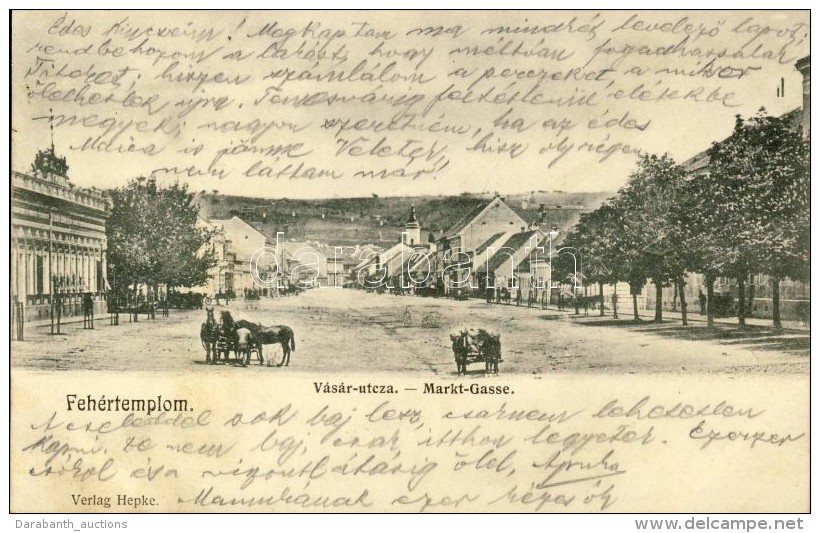 Édes Kincsem! Megkaptam ma mindkét levelező lapot,
rendbehozom a lakást, hogy méltóan fogadhassalak
Titeket, hiszen számlálom a perczeket, a mikor
ölelhetlek újra. Temesvárig feltétlenül elétekbe
megyek; nagyon szeretném, ha az édes
Maica is jönne Veletek, hisz oly régen
nem láttam már!
darabanth
Vásár-utcza. — Markt-Gasse.
Fehértemplom.
A cseléddel sok baj lesz, csaknem lehetetlen
kapni, de nem baj, csak itthon legyetek. Ezerszer
csókol és a viszontlátásig ölel, Apuka
Mamukának ezer kézcsók
Verlag Hepke.
Darabanth_auctions
http://www.delcampe.net